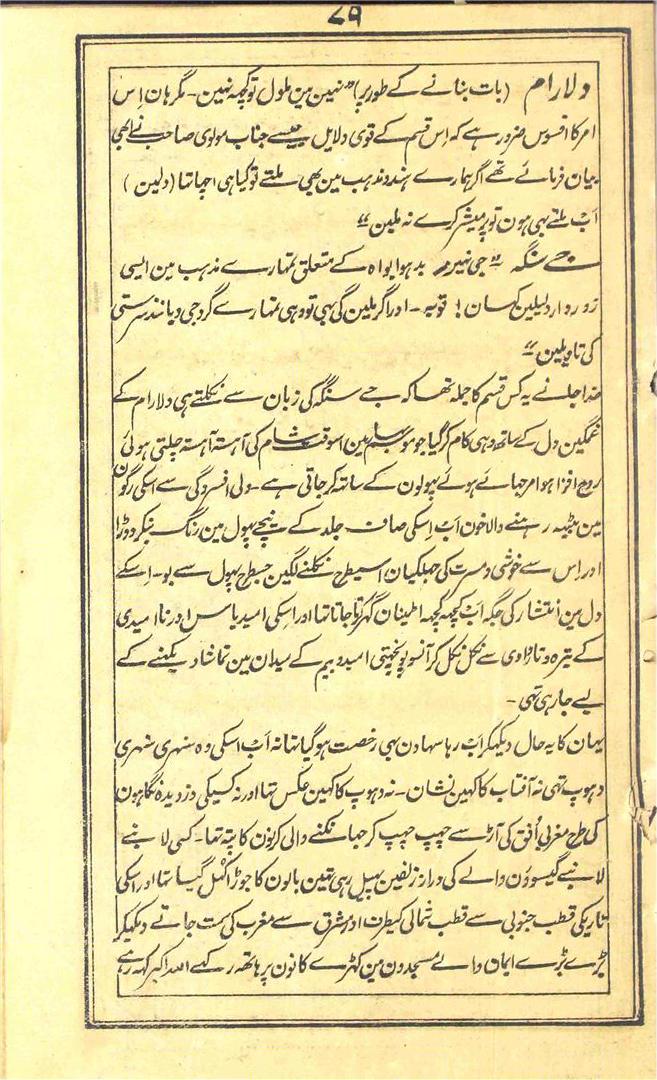 ۸۹
دلارام (بات بنانے کے طور پر) "نہین مین ملول تو کچہ نہین۔ مگر ہان اِس
امر کا افسوس ضرور ہے کہ اِس قسم کے قوی دلایل جیسے جناب مولوی صاحب نے ابھی
بیان فرمائے تھے اگر ہمارے ہندو مذہب مین بھی ملتے تو کیا ہی اچہا تہا (دلمین)
اَب ملتے بہی ہون تو پرمیشر کرے نہ ملین"
جے سنگہ "جی نہین بدہوا بواہ کے متعلق تمہارے مذہب مین ایسی
زوردار دلیلین کہان! توبہ۔ اور اگر ملین گی بہی تو وہی تمہارے گروجی دیانند سرستی
کی تاویلین"
خدا جانے یہ کس قسم کا جملہ تھا کہ جے سنگہ کی زبان سے نکلتے ہی دلارام کے
غمگین دل کے ساتھ وہی کام کر گیا جو موسم بہار مین اسوقت شام کی آہستہ آہستہ چلتی ہوئی
روح افزا ہوا مرجہائے ہوئے پہولون کے ساتہ کر جاتی ہے۔ دلی افسردگی سے اسکی رگون
مین بیٹہہ رہنے والا خون اَب اِسکی صاف جلد کے نیچے پہول مین رنگ بنکر دوڑا
اور اِس سے خوشی و مسرت کی جہلکیان اسیطرح نکلنے لگین جسطرح پہول سے بو۔ اِسکے
دل مین اِنتشار کی جگہ اَب کچہہ کچہہ اطمینان گہر کرتا جاتا تہا اور اسکی امید یاس اور ناامیدی
کے تیرہ و تار وادی سے نکل نکل کر آنسو پونچہتی امید و بیم کے میدان مین تماشا دیکہنے کے
لیے جا رہی تہی۔
یہان کا یہ حال دیکہکر اَب رہا سہا دن بہی رخصت ہو گیا تہا نہ اَب اسکی وہ سنہری سنہری
دہوپ تہی نہ آفتاب کا کہین نشان۔ نہ دہوپ کا کہین عکس تہا اور نہ کسیکی دزدیدہ نگاہون
کی طرح مغربی اُفق کی آڑ سے چہپ چہپ کر جہانکنے والی کرنون کا پتہ تہا۔ کسی لانبے
لانبے گیسوؤن والے کی دراز زلفین پہیل رہی تہین بالون کا جوڑا کُہل گیا تہا اور اسکی
تاریکی قطب جنوبی سے قطب شمالی کیطرف اور مشرق سے مغرب کی سمت جاتے دیکہکر
بڑے بڑے ایمان والے مسجدون مین کہڑے کانون پر ہاتھ رکہے اللہ اکبر کہہ رہے